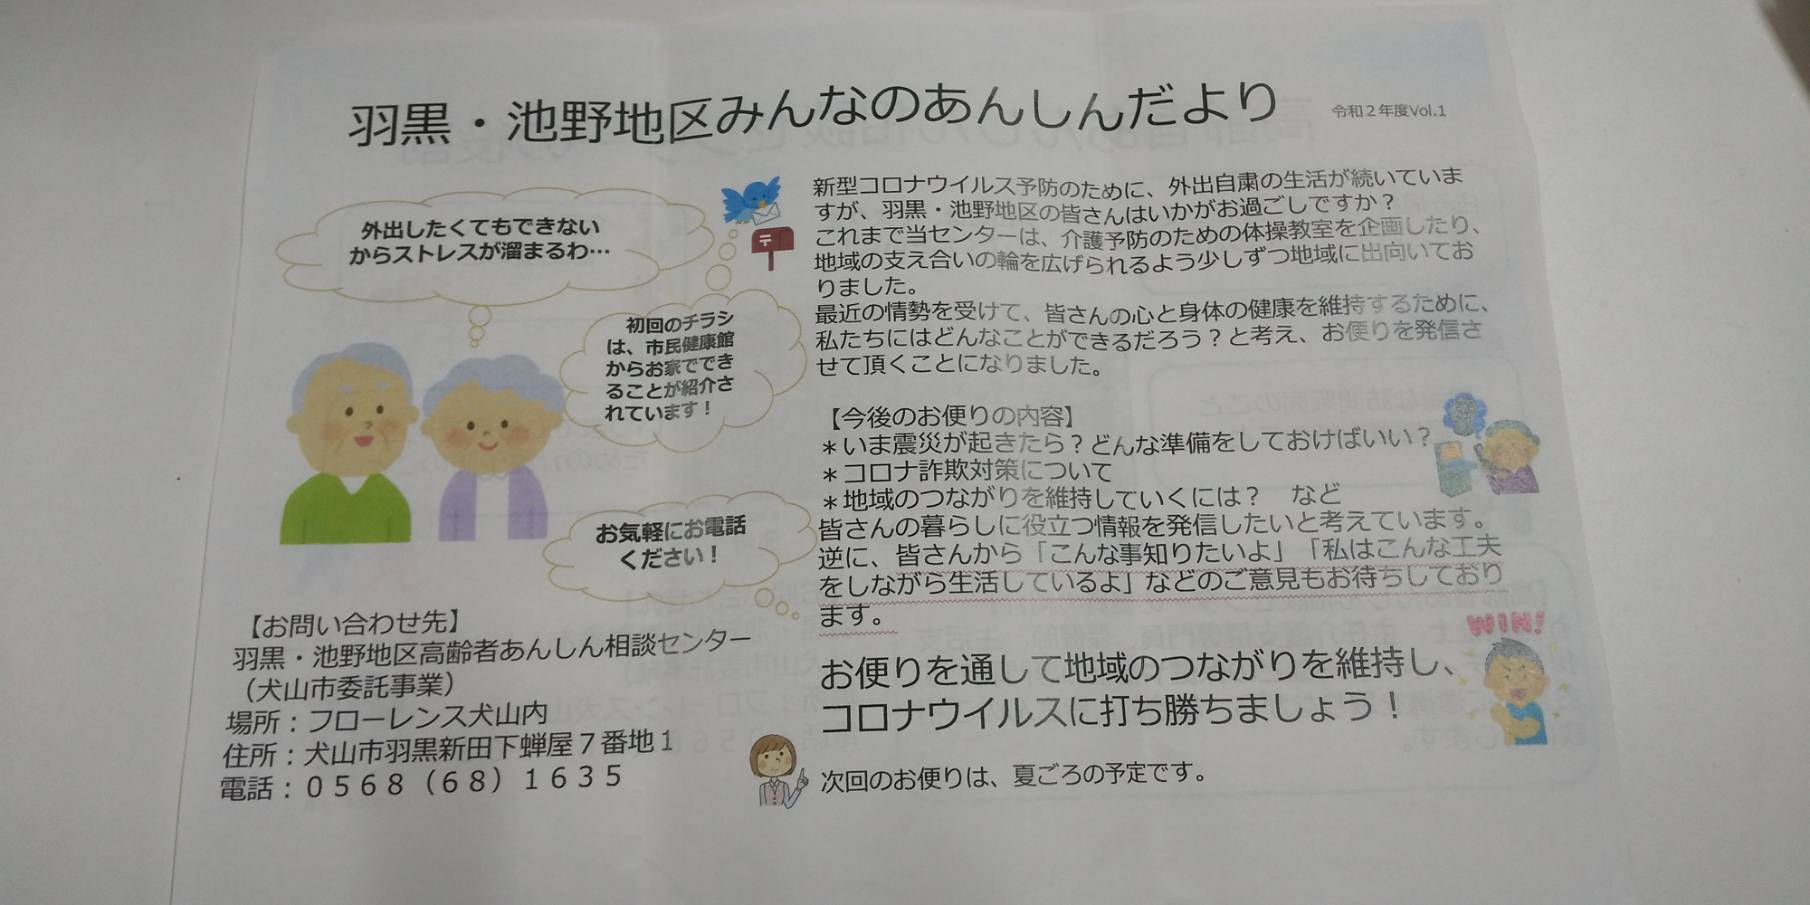 羽黒・池野地区みんなのあんしんだより
令和２年度Vol.1
外出したくてもできない
からストレスが溜まるわ…
初回のチラシ
は、市民健康館
からお家ででき
ることが紹介さ
れています！
お気軽にお電話
ください！
【お問い合わせ先】
羽黒・池野地区高齢者あんしん相談センター
（犬山市委託事業）
場所：フローレンス犬山内
住所：犬山市羽黒新田下蝉屋７番地１
電話：０５６８（６８）１６３５
新型コロナウイルス予防のために、外出自粛の生活が続いていま
すが、羽黒・池野地区の皆さんはいかがお過ごしですか？
これまで当センターは、介護予防のための体操教室を企画したり、
地域の支え合いの輪を広げられるよう少しずつ地域に出向いてお
りました。
最近の情勢を受けて、皆さんの心と身体の健康を維持するために、
私たちにはどんなことができるだろう？と考え、お便りを発信さ
せて頂くことになりました。
【今後のお便りの内容】
＊いま震災が起きたら？どんな準備をしておけばいい？
＊コロナ詐欺対策について
＊地域のつながりを維持していくには？　など
皆さんの暮らしに役立つ情報を発信したいと考えています。
逆に、皆さんから「こんな事知りたいよ」「私はこんな工夫
をしながら生活しているよ」などのご意見もお待ちしており
ます。
WIN!
お便りを通して地域のつながりを維持し、
コロナウイルスに打ち勝ちましょう！
次回のお便りは、夏ごろの予定です。